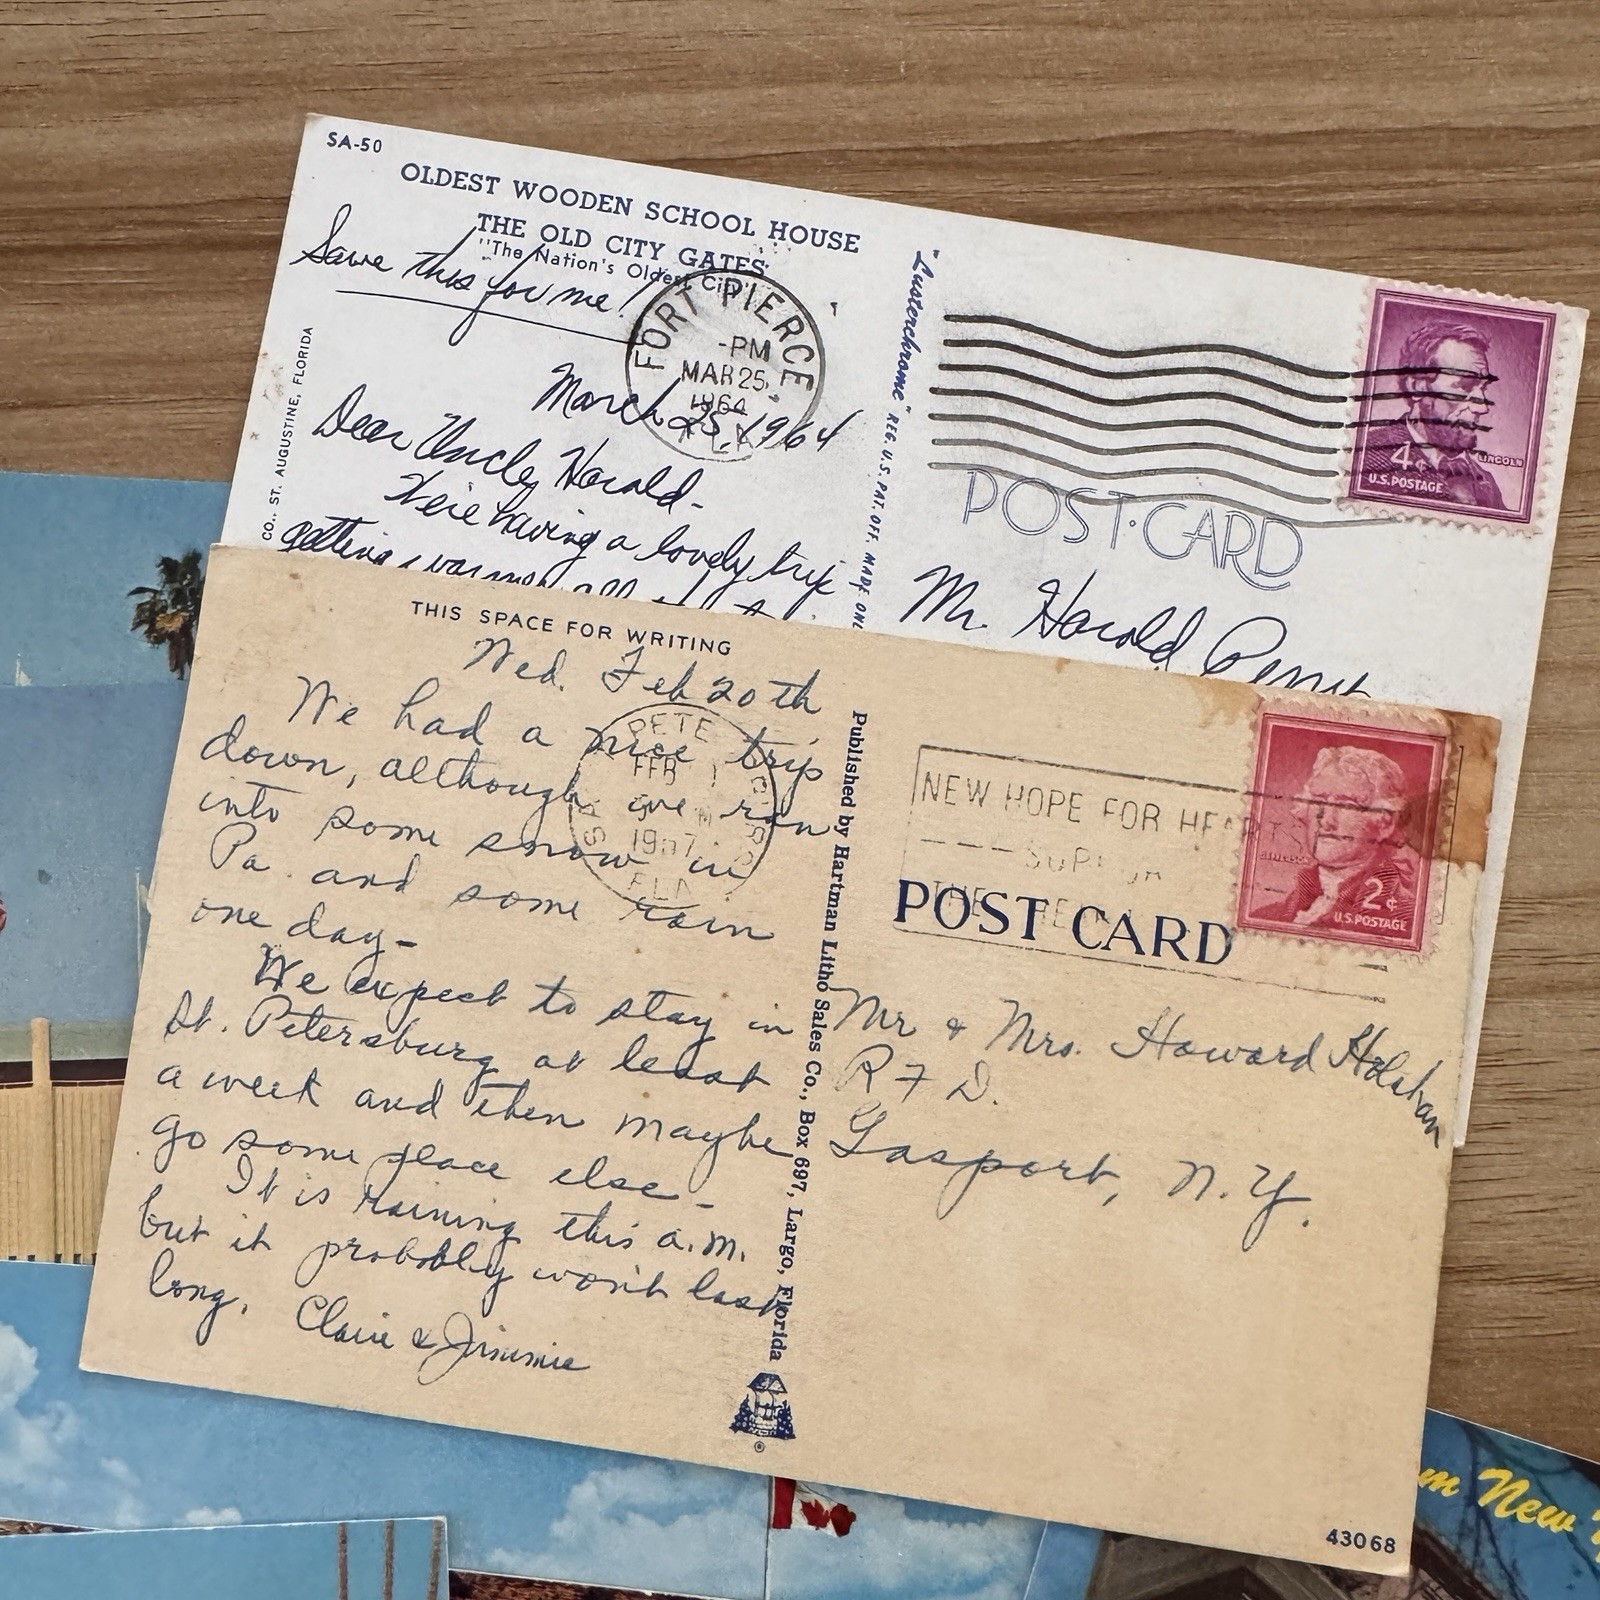 SA-50
OLDEST WOODEN SCHOOL HOUSE
THE OLD CITY GATES
"The Nation's Oldest City"
Save this for me!
FORT PIERCE
-PM
MAR 25
1964
FLA
March 25, 1964
Dear Uncle Harold-
We're having a lovely trip
getting warmer all
CO., ST. AUGUSTINE, FLORIDA
"Lusterchrome" REG. U.S. PAT. OFF. MADE ONL
LINCOLN
4¢
U.S. POSTAGE
POST CARD
Mr. Harold
THIS SPACE FOR WRITING
Wed. Feb 20th
We had a nice trip
down, although we ran
into some snow in
Pa and some rain
one day-
We expect to stay in
St. Petersburg at least
a week and then maybe
go some place else-
It is raining this a.m.
but it probably won't last
long.
Claire & Jimmie
PETE
FEB
M
1957
FLA
Published by Hartman Litho Sales Co., Box 697, Largo, Florida
NEW HOPE FOR HEARTS
THE
JEFFERSON
2¢
U.S. POSTAGE
POST CARD
Mr & Mrs. Howard Holahan
R F D.
Gasport, N.Y.
43068
m New